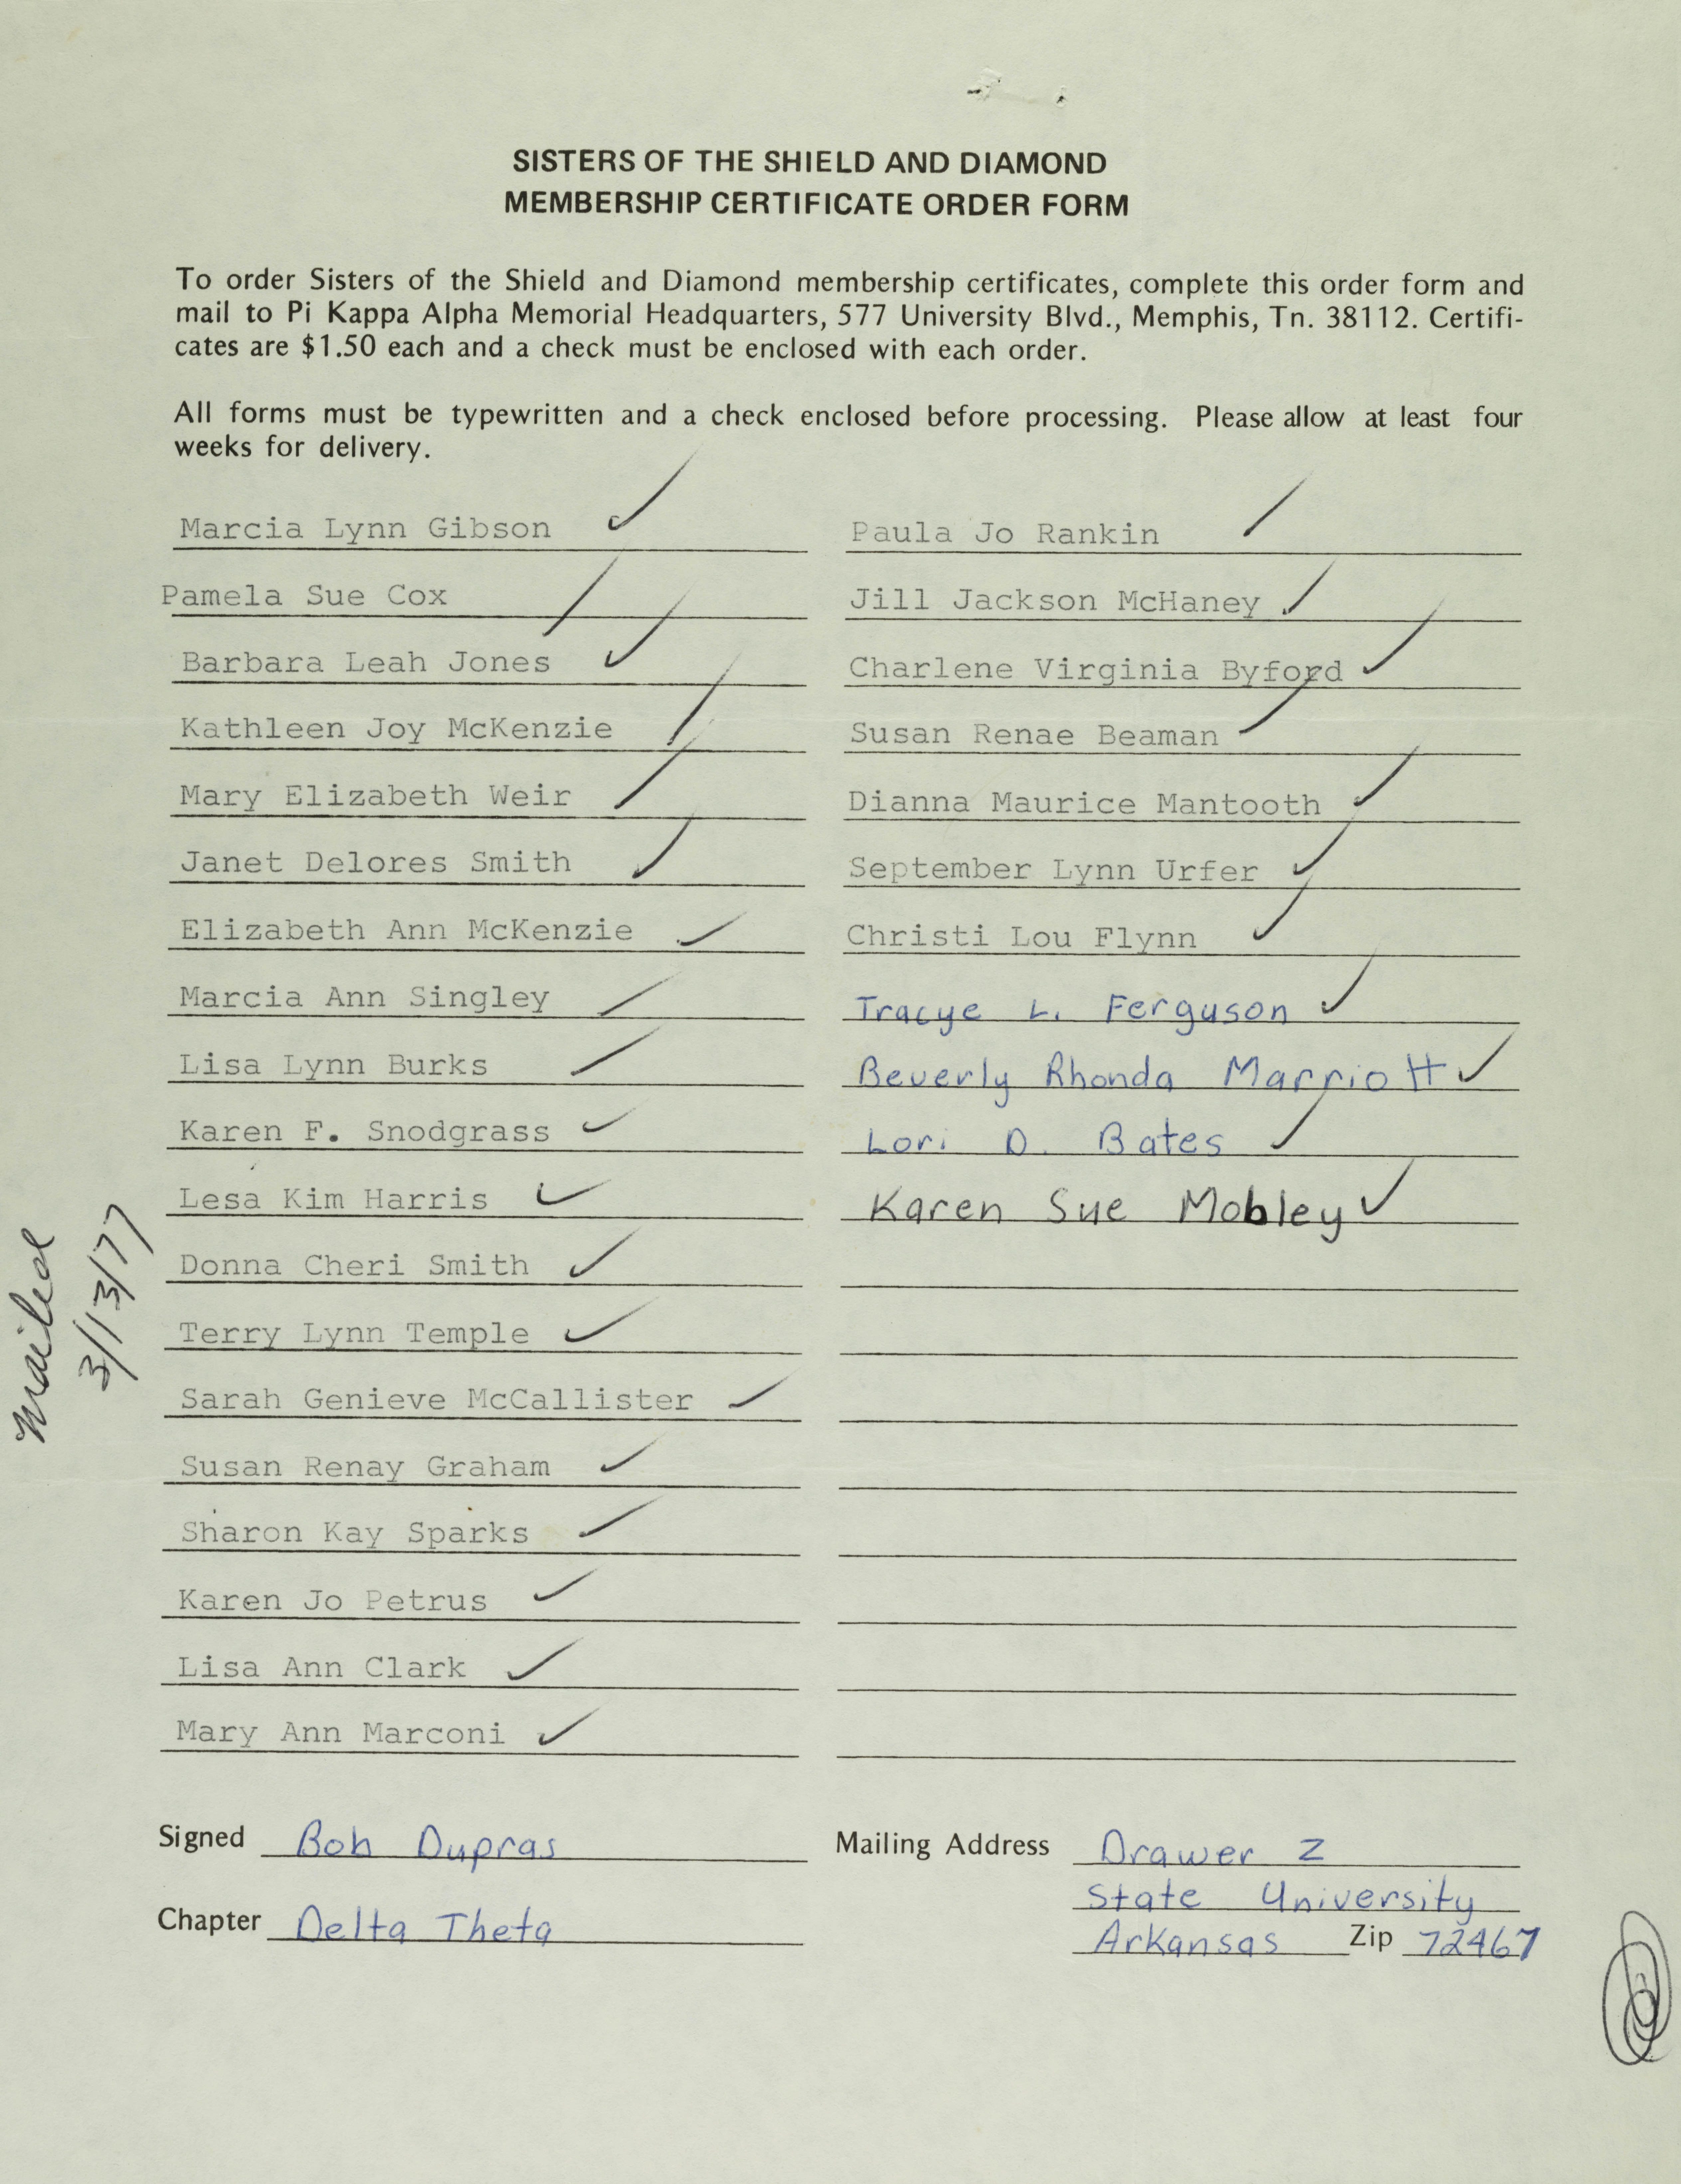 SISTERS OF THE SHIELD AND DIAMOND
MEMBERSHIP CERTIFICATE ORDER FORM
To order Sisters of the Shield and Diamond membership certificates, complete this order form and
mail to Pi Kappa Alpha Memorial Headquarters, 577 University Blvd., Memphis, Tn. 38112. Certifi-
cates are $1.50 each and a check must be enclosed with each order.
All forms must be typewritten and a check enclosed before processing. Please allow at least four
weeks for delivery.
Marcia Lynn Gibson
Pamela Sue Cox
Barbara Leah Jones
Kathleen Joy McKenzie
Mary Elizabeth Weir
Janet Delores Smith
Elizabeth Ann McKenzie
Marcia Ann Singley
Lisa Lynn Burks
Karen F. Snodgrass
Lesa Kim Harris
Donna Cheri Smith
Terry Lynn Temple
Sarah Genieve McCallister
Susan Renay Graham
Sharon Kay Sparks
Karen Jo Petrus
Lisa Ann Clark
Mary Ann Marconi
Paula Jo Rankin
Jill Jackson McHaney
Charlene Virginia Byford
Susan Renae Beaman
Dianna Maurice Mantooth
September Lynn Urfer
Christi Lou Flynn
Tracye L. Ferguson
Beverly Rhonda Marriott
Lori D. Bates
Karen Sue Mobley
mailed
3/13/77
Signed Bob Dupras
Chapter Delta Theta
Mailing Address Drawer Z
State University
Arkansas Zip 72467